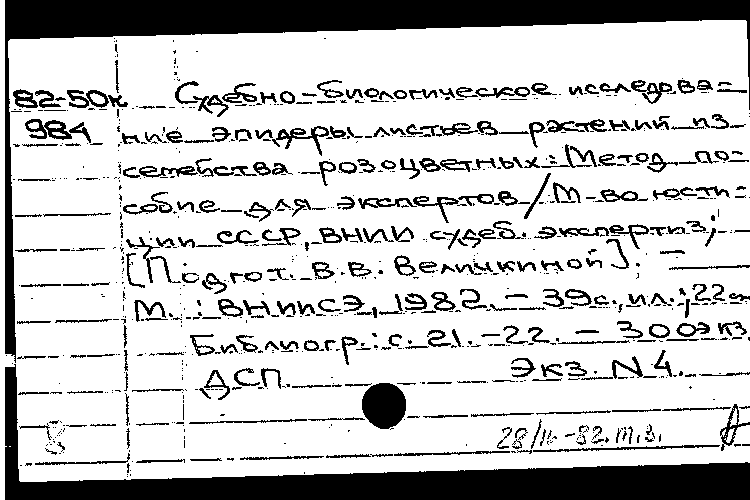 82-50к Судебно-биологическое исследова=
984 ние эпидеры листьев растений из
семейства розоцветных: Метод. по=
собие для экспертов/М-во юсти=
ции СССР, ВНИИ судеб. экспертиз;
[Подгот. В.В. Величкиной]. –
М. : ВНИИСЭ, 1982. – 39с., ил.; 22см
Библиогр.: с. 21.-22. – 300экз.
ДСП. Экз. N 4.
8 28/IV-82. т.з.